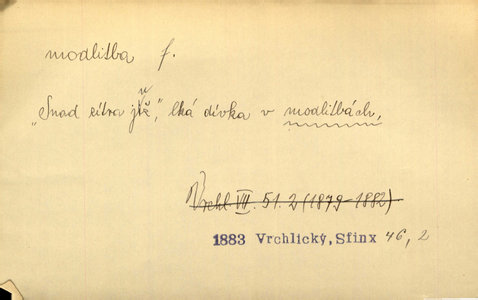 modlitba f.
„Snad zítra již“, lká dívka v modlitbách,
Vrchl. VII. 51. 2 (1879–1882)
1883 Vrchlický, Sfinx 46, 2